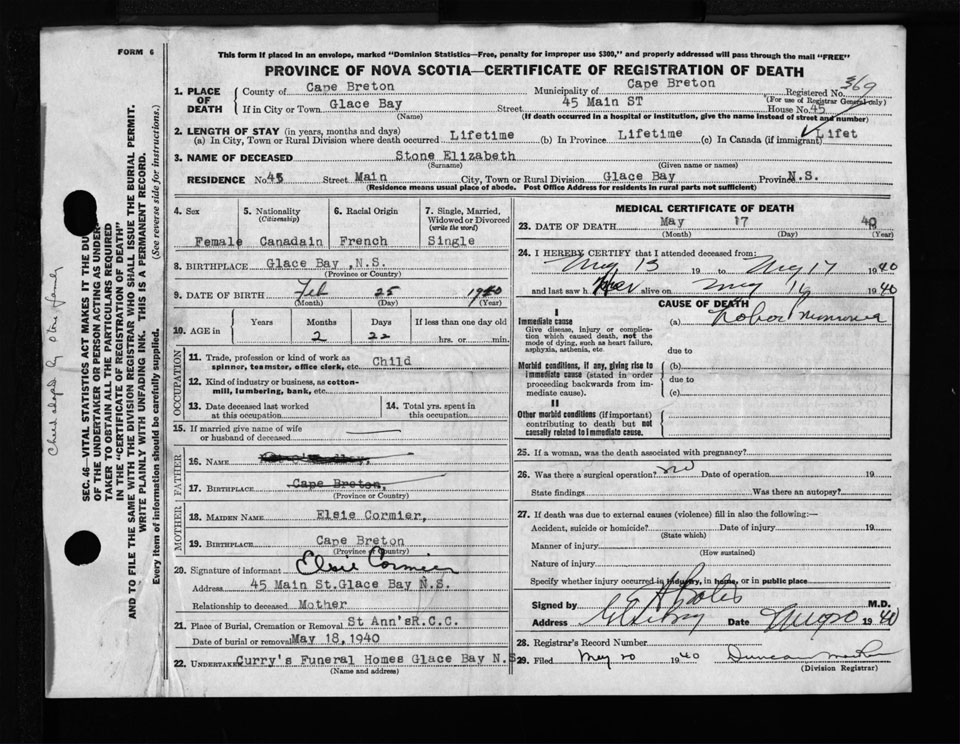 FORM 6
This form if placed in an envelope, marked "Dominion Statistics—Free, penalty for improper use $300," and properly addressed will pass through the mail "FREE"
PROVINCE OF NOVA SCOTIA—CERTIFICATE OF REGISTRATION OF DEATH
SEC. 46—VITAL STATISTICS ACT MAKES IT THE DU
OF THE UNDERTAKER OR PERSON ACTING AS UNDER-
TAKER TO OBTAIN ALL THE PARTICULARS REQUIRED
IN THE "CERTIFICATE OF REGISTRATION OF DEATH"
AND TO FILE THE SAME WITH THE DIVISION REGISTRAR WHO SHALL ISSUE THE BURIAL PERMIT.
WRITE PLAINLY WITH UNFADING INK. THIS IS A PERMANENT RECORD.
Every item of information should be carefully supplied. (See reverse side for instructions.)
1. PLACE OF DEATH
County of Cape Breton Municipality of Cape Breton Registered No. 369
(For use of Registrar General only)
If in City or Town Glace Bay Street 45 Main ST House No. 45
(Name) (If death occurred in a hospital or institution, give the name instead of street and number)
2. LENGTH OF STAY (in years, months and days)
(a) In City, Town or Rural Division where death occurred Lifetime (b) In Province Lifetime (c) In Canada (if immigrant) Lifet
3. NAME OF DECEASED Stone Elizabeth
(Surname) (Given name or names)
RESIDENCE No. 45 Street Main City, Town or Rural Division Glace Bay Province N.S.
(Residence means usual place of abode. Post Office Address for residents in rural parts not sufficient)
4. Sex
Female
5. Nationality
(Citizenship)
Canadain
6. Racial Origin
French
7. Single, Married, Widowed or Divorced
(write the word)
Single
8. BIRTHPLACE Glace Bay ,N.S.
(Province or Country)
9. DATE OF BIRTH Feb 25 1940
(Month) (Day) (Year)
10. AGE in
Years Months Days If less than one day old
2 22 hrs. or min.
OCCUPATION
11. Trade, profession or kind of work as spinner, teamster, office clerk, etc. Child
12. Kind of industry or business, as cotton-mill, lumbering, bank, etc.
13. Date deceased last worked at this occupation
14. Total yrs. spent in this occupation
15. If married give name of wife or husband of deceased
FATHER
16. NAME
17. BIRTHPLACE Cape Breton,
(Province or Country)
MOTHER
18. MAIDEN NAME Elsie Cormier,
19. BIRTHPLACE Cape Breton
(Province or Country)
20. Signature of informant Elsie Cormier
Address 45 Main St.Glace Bay N.S.
Relationship to deceased Mother
21. Place of Burial, Cremation or Removal St Ann'sR.C.C.
Date of burial or removal May 18,1940
22. UNDERTAKER Curry's Funeral Homes Glace Bay N.S
(Name and address)
MEDICAL CERTIFICATE OF DEATH
23. DATE OF DEATH May 17 40
(Month) (Day) (Year)
24. I HEREBY CERTIFY that I attended deceased from:
May 13 19 to May 17 1940
and last saw her alive on May 16 1940
CAUSE OF DEATH
I
Immediate cause
Give disease, injury or complication which caused death, not the mode of dying, such as heart failure, asphyxia, asthenia, etc.
(a) Lobar Pneumonia
due to
Morbid conditions, if any, giving rise to immediate cause (stated in order proceeding backwards from immediate cause).
(b)
due to
(c)
II
Other morbid conditions (if important) contributing to death but not causally related to immediate cause.
25. If a woman, was the death associated with pregnancy?
26. Was there a surgical operation? no Date of operation 19
State findings Was there an autopsy?
27. If death was due to external causes (violence) fill in also the following:—
Accident, suicide or homicide? Date of injury 19
(State which)
Manner of injury
(How sustained)
Nature of injury
Specify whether injury occurred in industry, in home, or in public place
Signed by M.D.
Address Date May 20 1940
28. Registrar's Record Number
29. Filed May 20 1940
(Division Registrar)